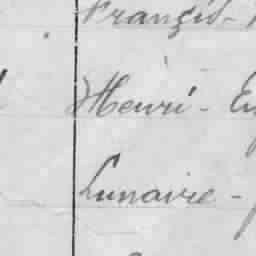 Françis -
Henri - Eu
Lunaire -